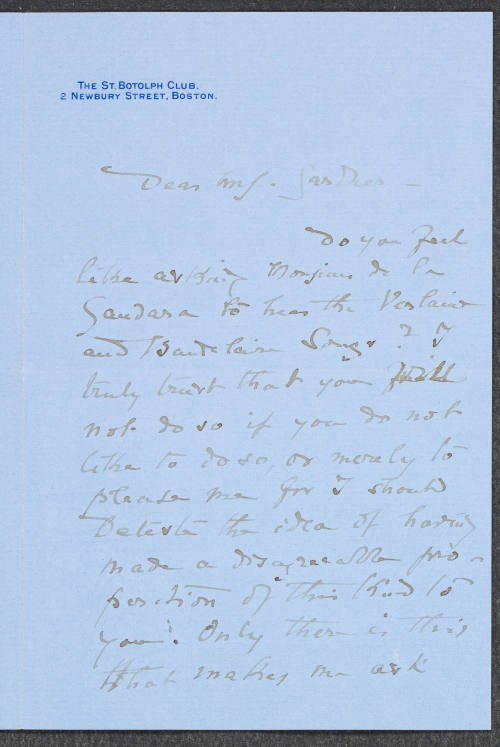 THE ST. BOTOLPH CLUB,
2 NEWBURY STREET, BOSTON.
Dear Mrs. Gardner –
Do you feel
like asking Monsieur de la
Gandara to hear the Verlaine
and Baudelaire Songs? I
truly trust that you will
not do so if you do not
like to do so, or merely to
please me for I should
Detest the idea of having
made a disagreeable pro-
position of this kind to
you. Only there is this
that makes me ask